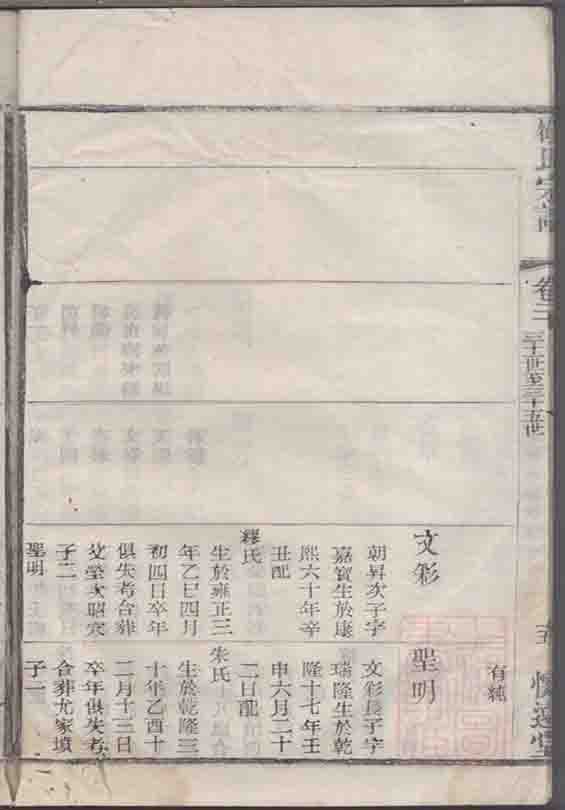 氏宗譜
卷二
三十一世至三十五世
五
文彩
朝昇次子字
嘉賓生於康
熙六十年辛
丑配
繆氏
生於雍正三
年乙巳四月
初四日卒年
俱失考合葬
父塋次昭穴
子二
聖明
有純
聖明
文彩長子字
瑞隆生於乾
隆十七年壬
申六月二十
二日配
朱氏
生於乾隆三
十年乙酉十
二月十三日
卒年俱失考
合葬尤家墳
子一